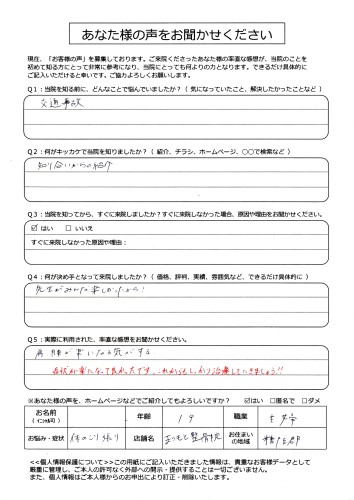 あなた様の声をお聞かせください
現在、「お客様の声」を募集しております。ご来院くださったあなた様の率直な感想が、当院のことを
初めて知る方にとって非常に参考になり、当院にとっても何よりの力となります。できるだけ具体的に
ご記入いただけると幸いです。ご協力よろしくお願いします。
Q1：当院を知る前に、どんなことで悩んでいましたか？（気になっていたこと、解決したかったことなど）
交通事故
Q2：何がキッカケで当院を知りましたか？（紹介、チラシ、ホームページ、〇〇で検索など）
知り合いからの紹介
Q3：当院を知ってから、すぐに来院しましたか？すぐに来院しなかった場合、原因や理由をお聞かせください。
☑ はい □ いいえ
すぐに来院しなかった原因や理由：
Q4：何が決め手となって来院しましたか？（価格、評判、実績、雰囲気など、できるだけ具体的に）
先生がみんな楽しかったから！
Q5：実際に利用された、率直な感想をお聞かせください。
肩腰が楽になった気がする
症状が楽になって良かったです。これからもしっかり治療していきましょう!!
※あなた様の声を、ホームページなどでご紹介してもよろしいですか？ ☑はい □匿名で □ダメ
お名前 年齢 19 職業 主婦
お悩み・症状 体のこり張り 店舗名 整骨院 お住まいの地域
<<個人情報保護について>>この用紙にご記入いただきました情報は、貴重なお客様データとして
厳重に管理し、ご本人の許可なく外部への開示・提供することは一切ございません。
また、個人情報はご本人様からのお申出により訂正・削除いたします。